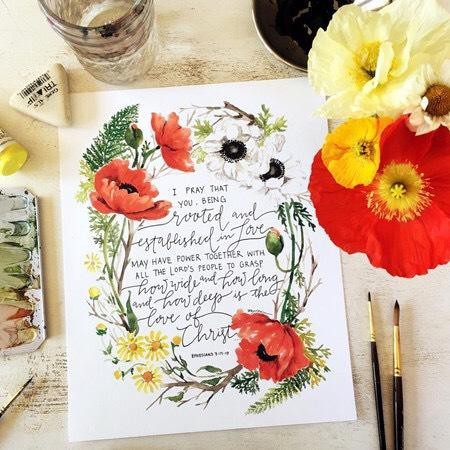 I PRAY THAT
YOU, BEING
rooted and
established in Love
MAY HAVE POWER TOGETHER WITH
ALL THE LORD'S PEOPLE TO GRASP
how wide and how long
and how deep is the
love of
Christ
EPHESIANS 3:17-19
TRI TIP